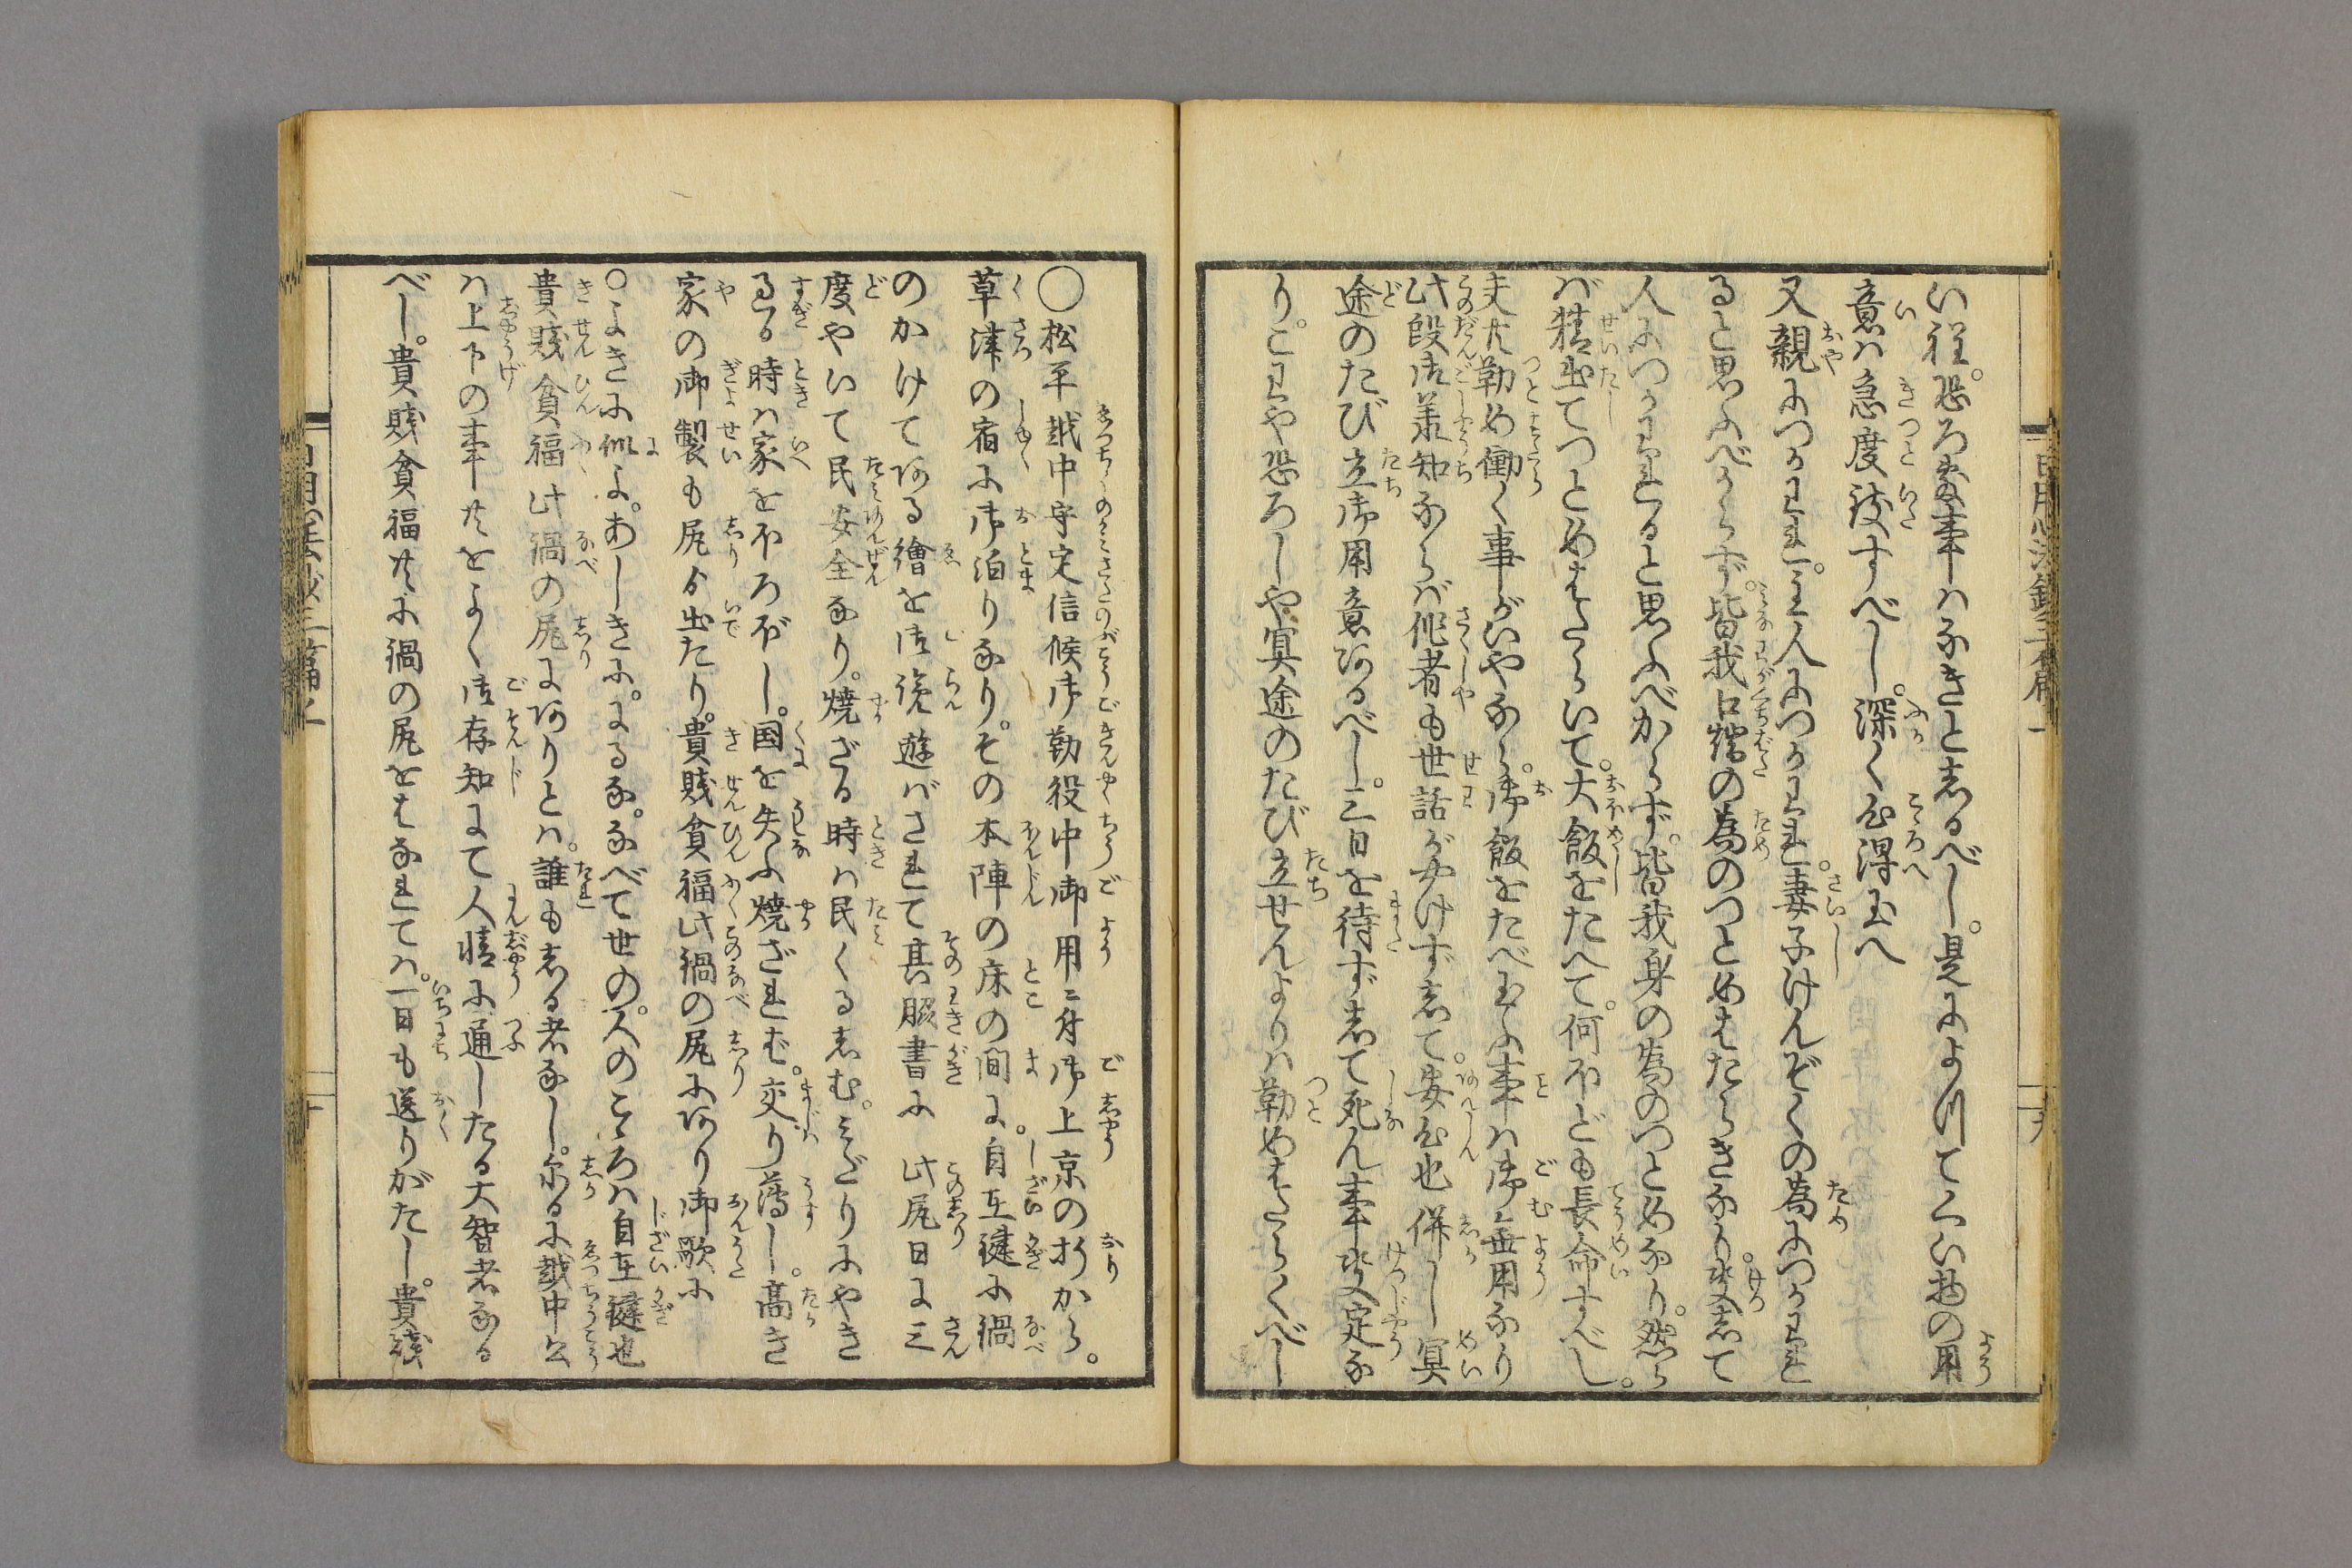 い程恐ろ敷事ハなきと志るべし。是によつてくい物の用
意ハ急度致すべし。深く心得玉へ
又親につかわれ。主人につかわれ。妻子けんぞくの為につかわれ
ると思ふべからず。皆我口糊の為のつとめはたらきなり。決志て
人につかわれると思ふべからず。皆我身の為のつとめなり。然ら
バ精出てつとめはたらいて。大飯をたへて。何ほども長命すべし。
夫共勤め働く事がいやなら。御飯をたべ玉ふ事ハ御無用なり
此段御業知ならバ作者も世話がやけず志て。安心也併し冥
途のたび立御用意あるべし。三日を待ず志て死ん事決定な
り。こわや恐ろしや冥途のたび立せんよりハ勤めはたらくべし
〇松平越中守定信候御勤役中御用ニ付御上京の折から。
草津の宿に御泊りなり。その本陣の床の間に。自在鍵に鍋
のかけてある繪を御覧遊バされて其脇書に此尻日に三
度やいて民安全なり。焼ざる時ハ民くるしむ。みだりにやき
過る時ハ家をほろぼし。国を失ふ焼ざれば。交り薄し。高き
家の御製も尻ゟ出たり。貴賤貧福此鍋の尻にあり御歌に
〇よきに似よ。あしきに。にるな。なべて世の。人のこゝろハ自在鍵也
貴賤貧福此鍋の尻にありとハ。誰も志る者なし。尓るに越中公
ハ上下の事共をよく御存知にて人情に通したる大智者なる
べし。貴賤貧福共に鍋の尻をはなれてハ。一日も送りがたし。貴賤